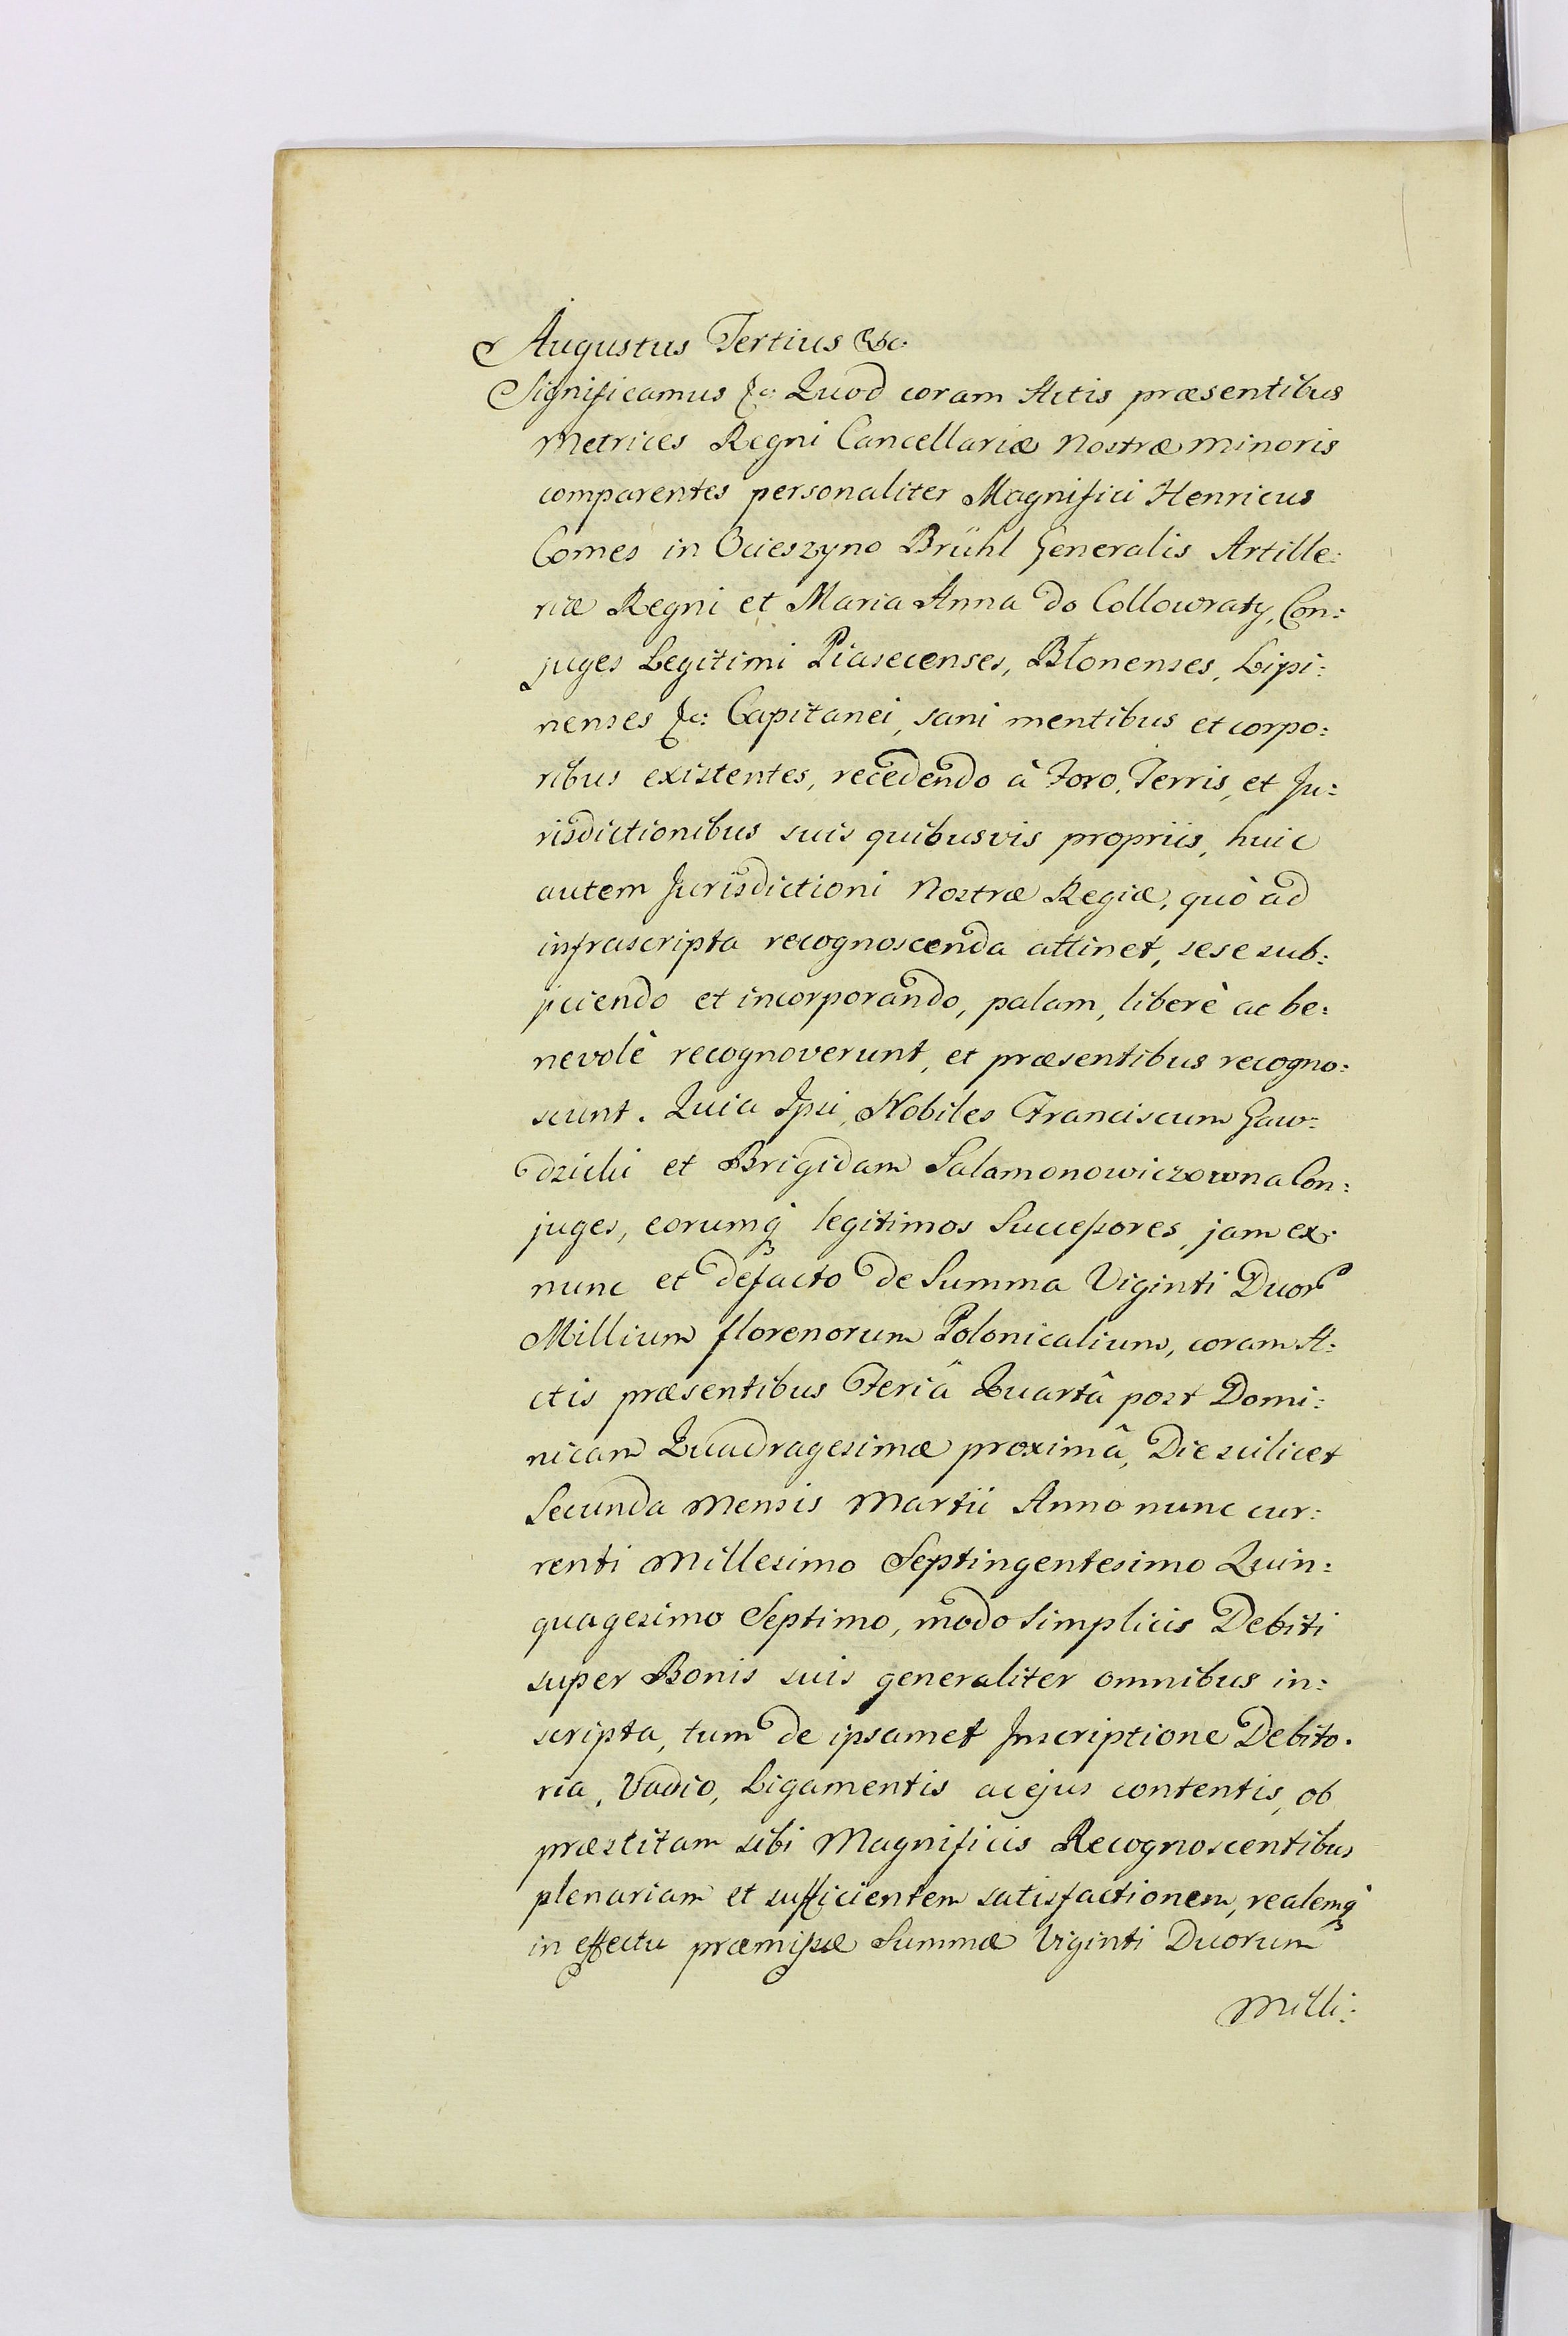 Augustus Tertius &c:
Significamus &c: Quod coram Actis præsentibus
Metrices Regni Cancellariæ Nostræ Minoris
comparentes personaliter Magnifici Henricus
Comes in Ocieszyno Brühl Generalis Artille:
riæ Regni et Maria Anna do Collowraty, Con:
juges Legitimi Piasecenses, Blonenses, Lipi:
nenses &c: Capitanei, sani mentibus et corpo:
ribus existentes, recedendo à Foro, Terris, et Ju:
risdictionibus suis quibusvis propriis, huic
autem Jurisdictioni Nostræ Regiæ, quò ad
infrascripta recognoscenda attinet, sese sub:
jiciendo et incorporando, palam, liberè ac be:
nevolè recognoverunt, et præsentibus recogno:
scunt. Quia Ipsi, Nobiles Franciscum Gaw:
dzicki et Brigidam Salamonowiczowna Con:
juges, eorumq́ legitimos Successores, jam ex
nunc et defacto de Summa Viginti Duor
Millium florenorum Polonicalium, coram A:
ctis præsentibus Feriâ Quartâ post Domi:
nicam Quadragesimæ proximâ, Die scilicet
Secunda Mensis Martii Anno nunc cur:
renti Millesimo Septingentesimo Quin:
quagesimo Septimo, modo Simplicis Debiti
super Bonis suis generaliter omnibus in:
scripta, tum de ipsamet Inscriptione Debito.
ria, Vadio, Ligamentis ac ejus contentis, ob
præstitam sibi Magnificis Recognoscentibus
plenariam et sufficientem satisfactionem, realemq́
in effectu præmissæ Summæ Viginti Duorum
Milli: